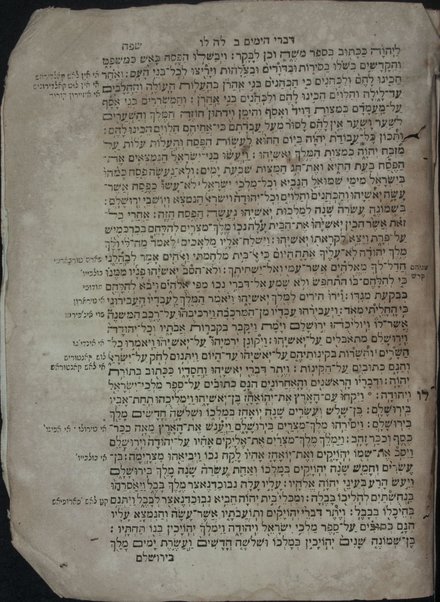 שפה דברי הימים ב לה לו
ליהוה ככתוב בספר משה וכן לבקר: ויבשלו הפסח באש כמשפט
והקדשים בשלו בסירות ובדודים ובצלחות ויריצו לכל־בני העם: ואחר
הכינו להם ולכהנים כי הכהנים בני אהרן בהעלות העולה והחלבים
עד־לילה והלוים הכינו להם ולכהנים בני אהרן: והמשררים בני אסף
על־מעמדם כמצות דויד ואסף והימן וידתון חוזה המלך והשערים
לשער ושער אין להם לסור מעל עבדתם כי־אחיהם הלוים הכינו להם:
ותכון כל־עבודת יהוה ביום ההוא לעשות הפסח והעלות עלות על
מזבח יהוה כמצות המלך יאשיהו: ויעשו בני־ישראל הנמצאים את־
הפסח בעת ההיא ואת־חג המצות שבעת ימים: ולא־נעשה פסח כמהו
בישראל מימי שמואל הנביא וכל־מלכי ישראל לא־עשו כפסח אשר־
עשה יאשיהו והכהנים והלוים וכל־יהודה וישראל הנמצא ויושבי ירושלם:
בשמונה עשרה שנה למלכות יאשיהו נעשה הפסח הזה: אחרי כל־
זאת אשר הכין יאשיהו את־הבית עלה נכו מלך־מצרים להלחם בכרכמיש
על־פרת ויצא לקראתו יאשיהו: וישלח אליו מלאכים לאמר מה־לי ולך
מלך יהודה לא־עליך אתה היום כי אל־בית מלחמתי ואלהים אמר לבהלני
חדל־לך מאלהים אשר־עמי ואל־ישחיתך: ולא־הסב יאשיהו פניו ממנו
כי להלחם־בו התחפש ולא שמע אל־דברי נכו מפי אלהים ויבא להלחם
בבקעת מגדו: וירו הירים למלך יאשיהו ויאמר המלך לעבדיו העבירוני
כי החליתי מאד: ויעבירהו עבדיו מן־המרכבה וירכיבהו על־רכב המשנה
אשר־לו ויוליכהו ירושלם וימת ויקבר בקברות אבתיו וכל־יהודה
וירושלם מתאבלים על־יאשיהו: ויקונן ירמיהו על־יאשיהו ויאמרו כל־
השרים והשרות בקינותיהם על־יאשיהו עד־היום ויתנום לחק על־ישראל
והנם כתובים על־הקינות: ויתר דברי יאשיהו וחסדיו ככתוב בתורת
יהוה: ודבריו הראשנים והאחרונים הנם כתובים על־ספר מלכי־ישראל
לו ויהודה: ויקחו עם־הארץ את־יהואחז בן־יאשיהו וימליכהו תחת־אביו
בירושלם: בן־שלש ועשרים שנה יואחז במלכו ושלשה חדשים מלך
בירושלם: ויסירהו מלך־מצרים בירושלם ויענש את־הארץ מאה ככר־
כסף וככר זהב: וימלך מלך־מצרים את־אליקים אחיו על־יהודה וירושלם
ויסב את־שמו יהויקים ואת־יואחז אחיו לקח נכו ויביאהו מצרימה: בן־
עשרים וחמש שנה יהויקים במלכו ואחת עשרה שנה מלך בירושלם
ויעש הרע בעיני יהוה אלהיו: עליו עלה נבוכדנאצר מלך בבל ויאסרהו
בנחשתים להליכו בבלה: ומכלי בית יהוה הביא נבוכדנאצר לבבל ויתנם
בהיכלו בבבל: ויתר דברי יהויקים ותועבתיו אשר־עשה והנמצא עליו
הנם כתובים על־ספר מלכי ישראל ויהודה וימלך יהויכין בנו תחתיו:
בן־שמונה שנים יהויכין במלכו ושלשה חדשים ועשרת ימים מלך
בירושלם